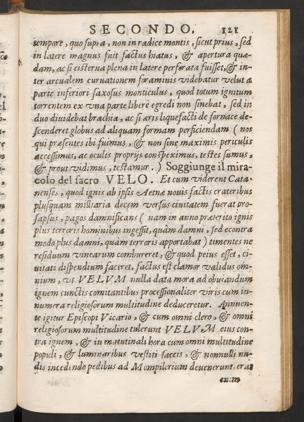 SECONDO. 121
tempore, quo supra, non in radice montis, sicut prius, sed
in latere magnus fuit factus hiatus, & apertura quæ-
dam, ac si cisterna plena in latere perforata fuisset, & in-
ter arcualem curuationem foraminis videbatur velut a
parte inferiori saxosus monticulus, quod totum ignitum
torrentem ex vna parte liberè egredi non sinebat, sed in
duo diuidebat brachia, ac si aris liquefacti de fornace de-
scenderet globus ad aliquam formam perficiendam (nos
qui præsentes ibi fuimus, & non sine maximis periculis
accessimus, ac oculis proprijs conspeximus, testes sumus
& prout vidimus, testamur.) Soggiunge il mira-
colo del sacro VELO. Et cum viderent Cata-
nenses, quod ignis ab ipsis Aetnæ nouis factis crateribus
plusquam milliaria decem versus ciuitatem fuerat pro-
lapsus, pagos damnificans (nam in anno præterito ignis
plus terroris hominibus ingessit, quàm damni, sed econtra
modo plus damni, quàm terroris apportabat) timentes ne
residuum vinearum combureret, & quod peius esset, ci-
uitati dispendium faceret, factus est clamor validus om-
nium, vt VELVM nulla data mora ad obuiandum
ignem cunctis comitantibus processionaliter viris cum in-
numera religiosorum multitudine deduceretur. Annuen-
te igitur Episcopi Vicario, & cum omni clero, & omni
religiosorum multitudine tulerunt VELVM eius con-
tra ignem, & in matutinali hora cum omni multitudine
populi, & luminaribus vestiti saccis, & nonnulli nu-
dis incedendo pedibus ad Mompilerium deuenerunt, erat